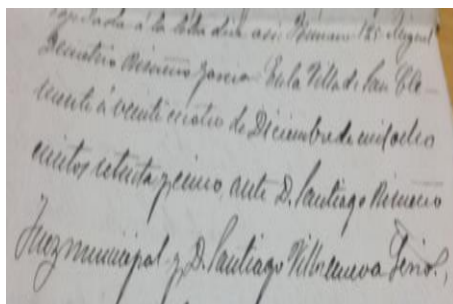 copiada á la letra dice así: Número 185. Miguel
Demetrio Rimeno Garcia. En la Villa de San Cle-
mente á veinte cuatro de Diciembre de mil ocho
cientos setenta y cinco, ante D. Santiago
Juez municipal y D. Santiago Villanueva